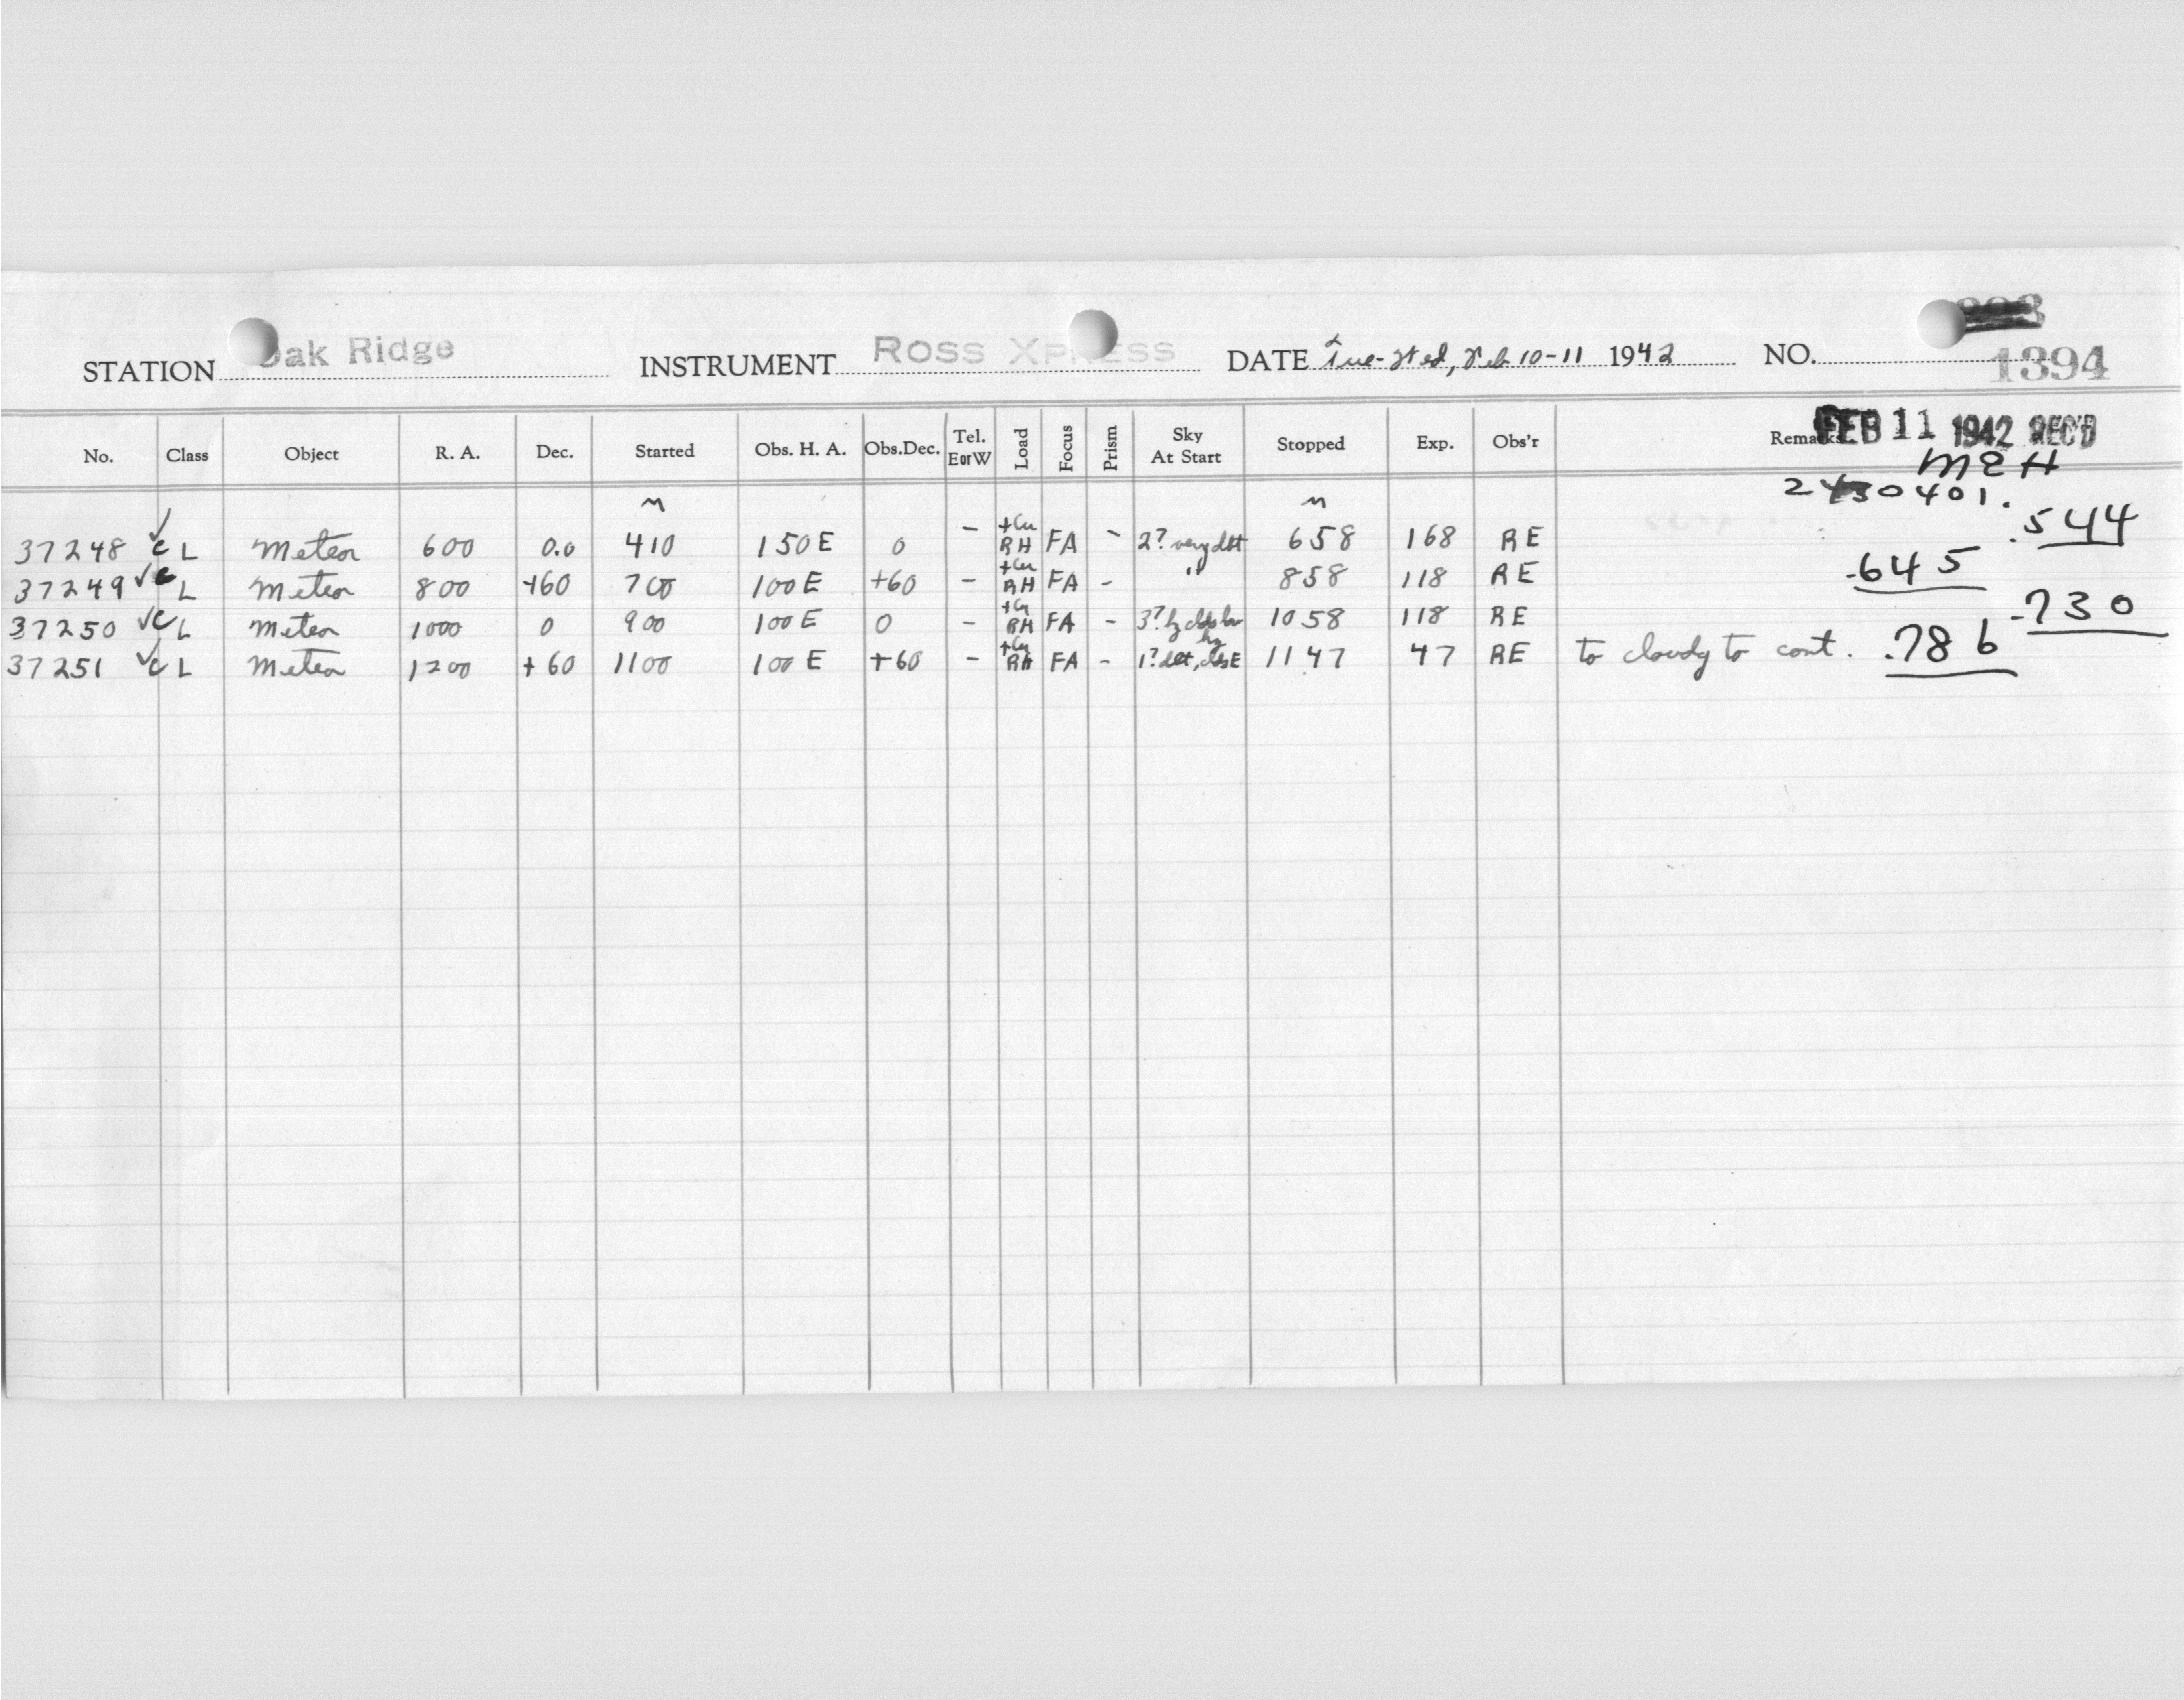 1394
STATION Oak Ridge INSTRUMENT ROSS XPRESS DATE Tue-Wed, Feb 10-11 1942 NO.
FEB 11 1942 REC'D
No. Class Object R. A. Dec. Started Obs. H. A. Obs.Dec. Tel. E or W Load Focus Prism Sky At Start Stopped Exp. Obs'r Remarks
MEH
0401.
.544
37248 ✓ C L Meteor 600 0.0 410 150 E 0 - +Cu RH FA - 2? very dst 658 168 RE
.645
37249 ✓ C L Meteor 800 +60 700 100 E +60 - +Cu RH FA - " 858 118 RE
.730
37250 ✓ C L Meteor 1000 0 900 100 E 0 - +Cu RH FA - 3? hz 1058 118 RE
37251 ✓ C L Meteor 1200 +60 1100 100 E +60 - +Cu RH FA - 1? hz 1147 47 RE to cloudy to cont. .786